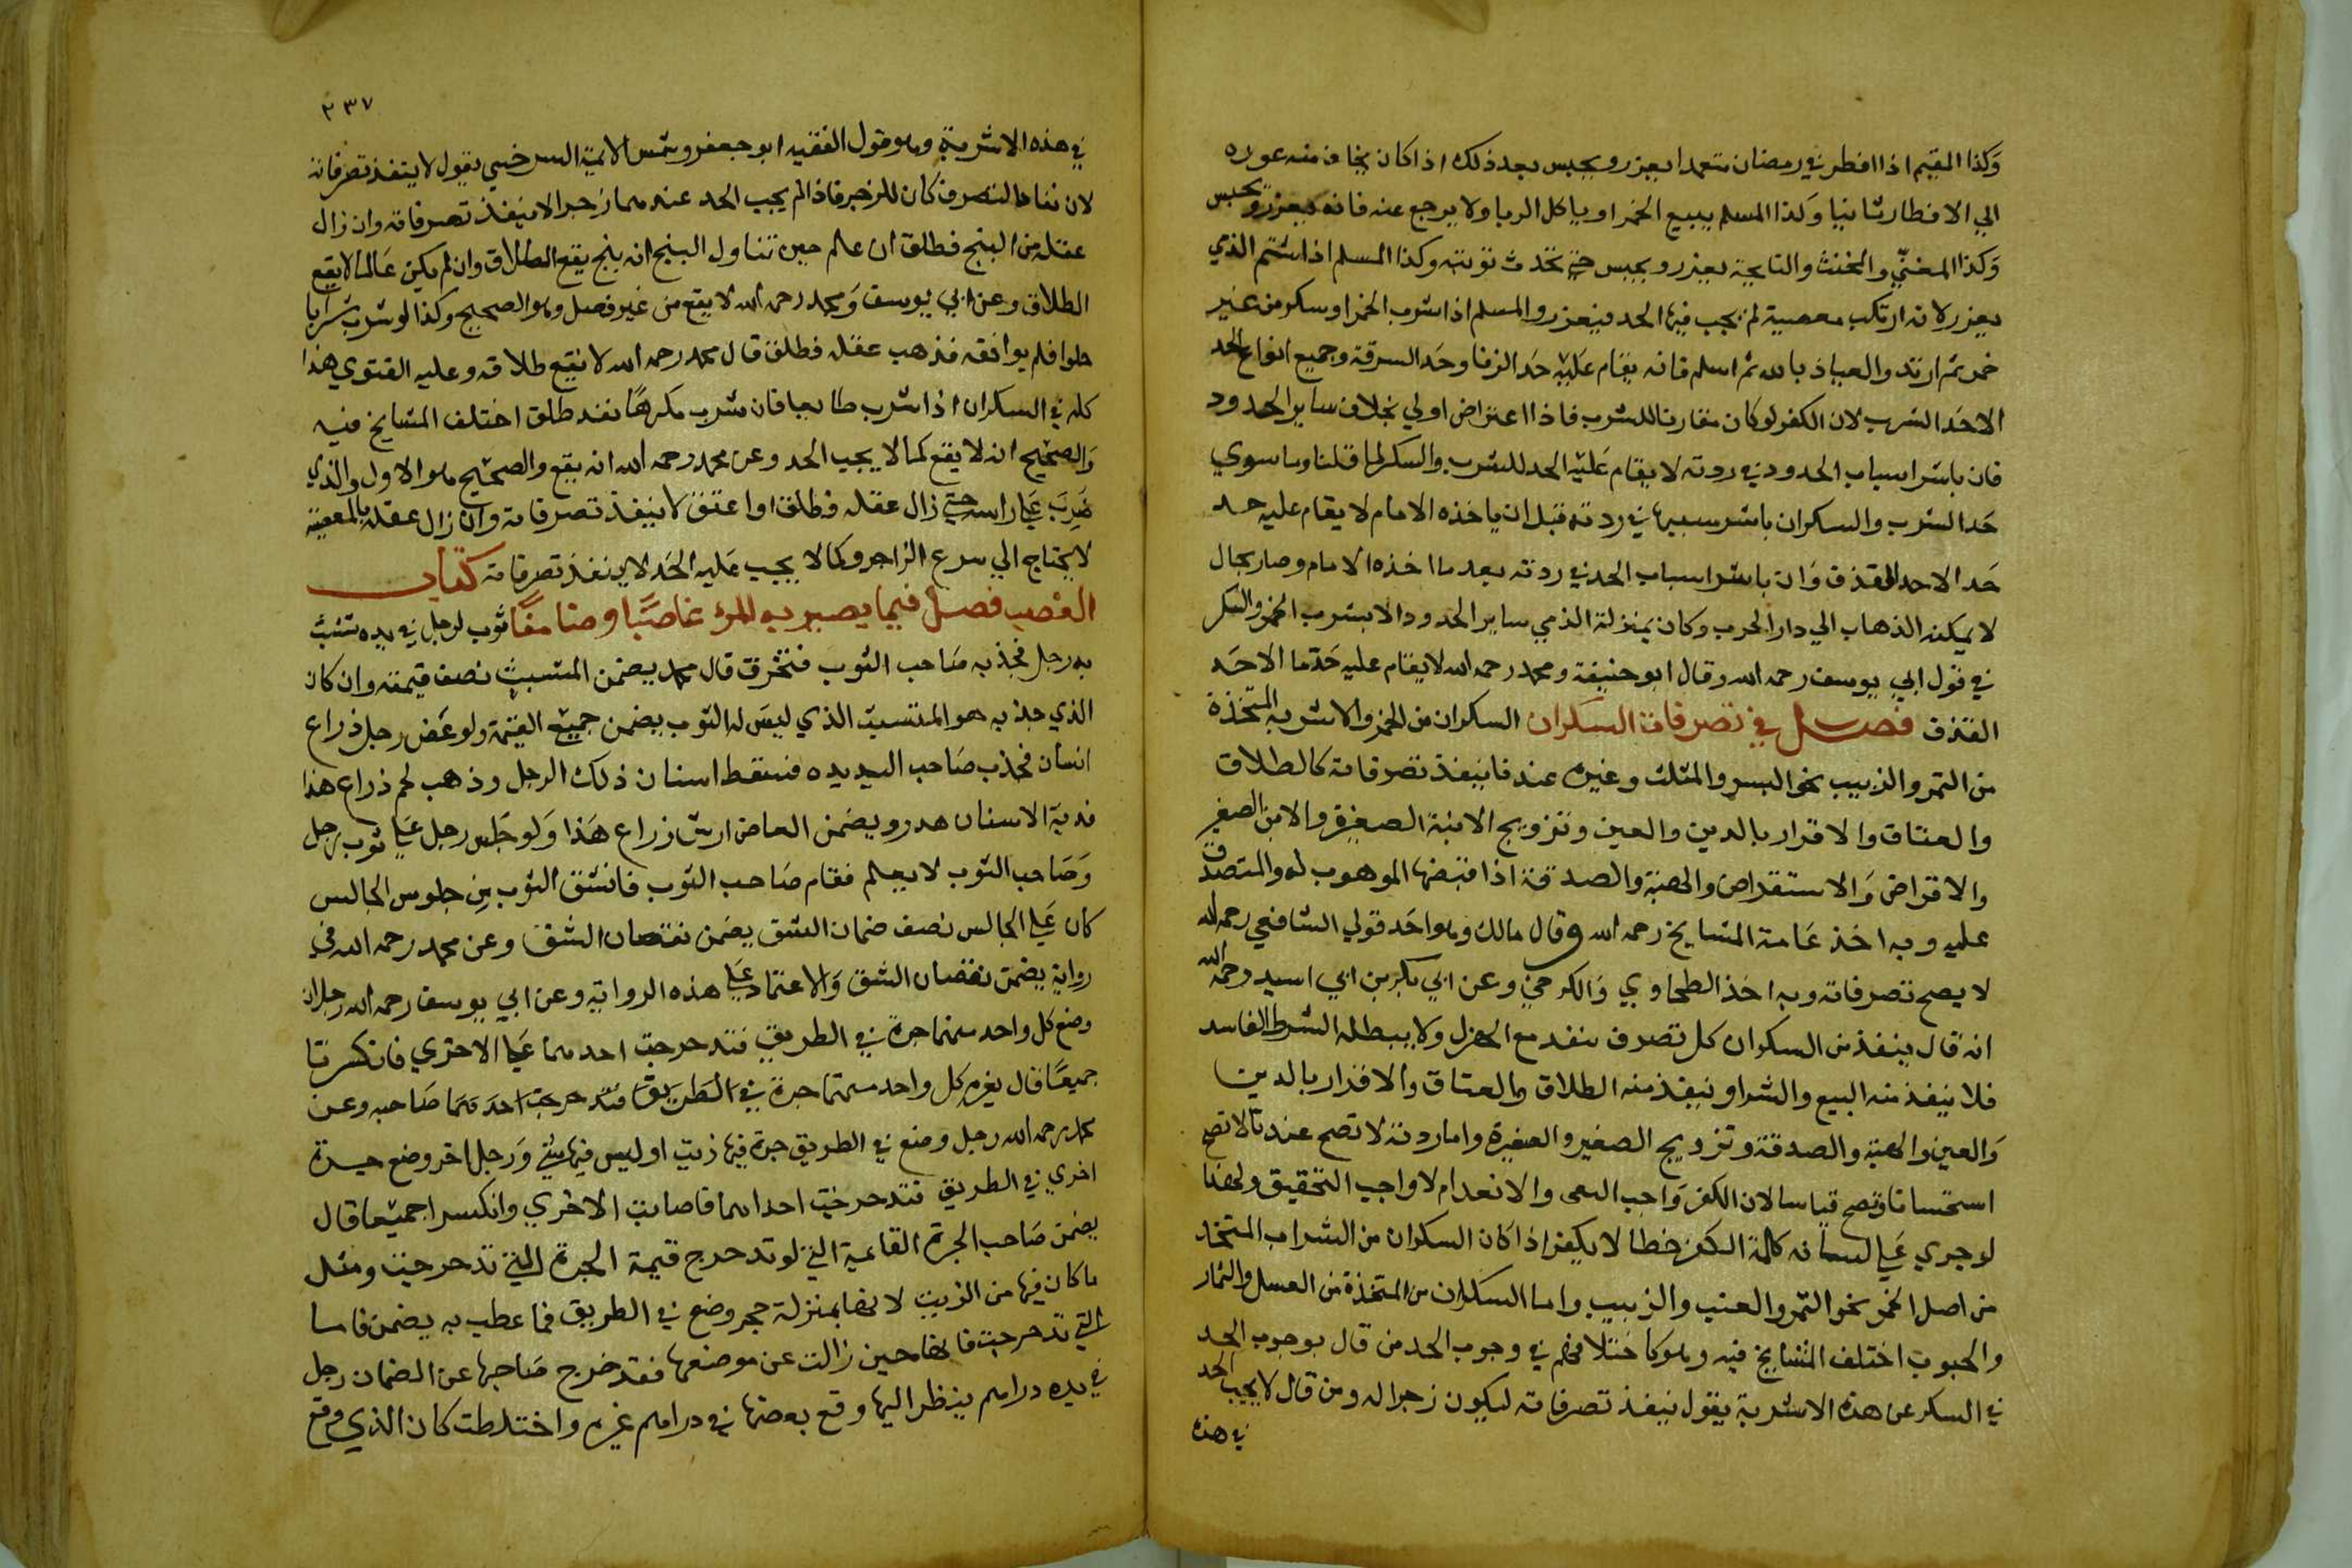 وكذا المقيم اذا افطر في رمضان متعمدا يعزر ويحبس بعد ذلك اذا كان يخاف منه عوده
الي الافطار ثانيا وكذا المسلم يبيع الخمر او ياكل الربا ولا يرجع عنه فانه يعزر ويحبس
وكذا المغني والمخنث والنايحة يعزر ويحبس حتي تحدث توبته وكذا المسلم اذا شتم الذمي
يعزر لانه ارتكب معصية لم يجب فيها الحد فيعزر والمسلم اذا شرب الخمر او سكر من غير
خمر ثم ارتد والعياذ بالله ثم اسلم فانه يقام عليه حد الزنا وحد السرقة وجميع انواع الحد
الا حد الشرب لان الكفر لو كان مقارنا للشرب فاذا اعتراض اولي بخلاف ساير الحدود
فان باشر اسباب الحدود في ردته لا يقام عليه الحد للشرب والسكر لما قلنا وما سوي
حد الشرب والسكران باشر سببها في ردته قبل ان ياخذه الامام لا يقام عليه حد
حد الاحد القذف وان باشر اسباب الحد في ردته بعد ما اخذه الامام وصار بحال
لا يمكنه الذهاب الي دار الحرب وكان بمنزلة الذمي ساير الحدود الا بشرب الخمر والسكر
في قول ابي يوسف رحمه الله وقال ابو حنيفة ومحمد رحمه الله لا يقام عليه حد ما الا حد
القذف فصل في تصرفات السكران السكران من الخمر والاشربه المتخذة
من التمر والزبيب نحو البسر والمثلث وغيره عندنا ينفذ تصرفاته كالطلاق
والعتاق والاقرار بالدين والعين وتزويج الابنة الصغيرة والابن الصغير
والاقراض والاستقراض والهبة والصدقة اذا قبضها الموهوب له والمتصدق
عليه وبه اخذ عامة المشايخ رحمه الله وقال مالك وهو احد قولي الشافعي رحمه الله
لا يصح تصرفاته وبه اخذ الطحاوي والكرخي وعن ابي بكر بن ابي اسيد رحمه الله
انه قال ينفذ من السكران كل تصرف ينفد مع الهزل ولا يبطله الشرط الفاسد
فلا ينفذ منه البيع والشرا وينفذ منه الطلاق والعتاق والاقرار بالدين
والعين والهبة والصدقة وتزويج الصغير والصغيرة واما ردته لا تصح عندنا لا تصح
استحسانا وتصح قياسا لان الكفر واجب النعي والانعدام لا واجب التحقيق ولهذا
لو جري علي لسانه كلمة الكفر خطا لا يكفر اذا كان السكران من الشراب المتخذ
من اصل الخمر نحو التمر والعنب والزبيب واما السكران من المتخذة من العسل والثمار
والحبوب اختلف المشايخ فيه وهو كاختلافهم في وجوب الحد من قال بوجوب الحد
في السكر عن هذه الاشربة يقول ينفذ تصرفاته ليكون زجرا له ومن قال لا يجب الحد
في هذه
٢٣٧
في هذه الاشربة وهو قول الفقيه ابو جعفر وشمس الايمة السرخسي يقول لا ينفذ تصرفاته
لان نفاذ التصرف كان للزجر فاذا لم يجب الحد عندهما زجرا لا ينفذ تصرفاته وان زال
عقله من البنج فطلق ان علم حين تناول البنج انه بنج يقع الطلاق وان لم يكن عالما لا يقع
الطلاق وعن ابي يوسف ومحمد رحمه الله لا يقع من غير فصل وهو الصحيح وكذا لو شرب شرابا
حلوا فلم يوافقه فذهب عقله فطلق قال محمد رحمه الله لا يقع طلاقه وعليه الفتوي هذا
كله في السكران اذا شرب طايعا فان شرب مكرها فقد طلق اختلف المشايخ فيه
والصحيح انه لا يقع كما لا يجب الحد وعن محمد رحمه الله انه يقع والصحيح هو الاول والذي
ضرب علي راسه حتي زال عقله فطلق او اعتق لا ينفذ تصرفاته وان زال عقله بالمعصية
لا يحتاج الي شرع الزاجر وكما لا يجب عليه الحد لا ينفذ تصرفاته كتاب
الغصب فصل فيما يصير به المرؤ غاصبا وضامنا ثوب لرجل في يده تشبث
به رجل فجذبه صاحب الثوب فتخرق قال محمد يضمن المتشبث نصف قيمته وان كان
الذي جذبه هو المتشبث الذي ليس له الثوب يضمن جميع القيمة ولو عض رجل ذراع
انسان فجذب صاحب اليد يده فسقط اسنان ذلك الرجل وذهب لحم ذراع هذا
فدية الاسنان هدر ويضمن العاض ارش زراع هذا ولو جلس رجل علي ثوب رجل
وصاحب الثوب لا يعلم فقام صاحب الثوب فانشق الثوب من جلوس الجالس
كان علي الجالس نصف ضمان الشق يضمن نقصان الشق وعن محمد رحمه الله في
رواية يضمن نقصان الشق والاعتماد علي هذه الرواية وعن ابي يوسف رحمه الله رجلان
وضع كل واحد منهما جرة في الطريق فتدحرجت احدهما علي الاخري فانكسرتا
جميعا قال يغرم كل واحد منهما جرة في الطريق فتدحرجت احدهما صاحبه وعن
محمد رحمه الله رجل وضع في الطريق جرة فيها زيت او ليس فيها شي ورجل اخر وضع جرة
اخري في الطريق فتدحرجت احداهما فاصابت الاخري وانكسرا جميعا قال
يضمن صاحب الجرة القاعية التي لو تدحرج قيمة الجرة التي تدحرجت ومثل
ما كان فيها من الزيت لانها بمنزلة حجر وضع في الطريق فما عطب به يضمن فاما
التي تدحرجت فانها حين زالت عن موضعها فقد خرج صاحبها عن الضمان رجل
في يده دراهم ينظر اليها وقع بعضها في دراهم غيره واختلطت كان الذي وقع